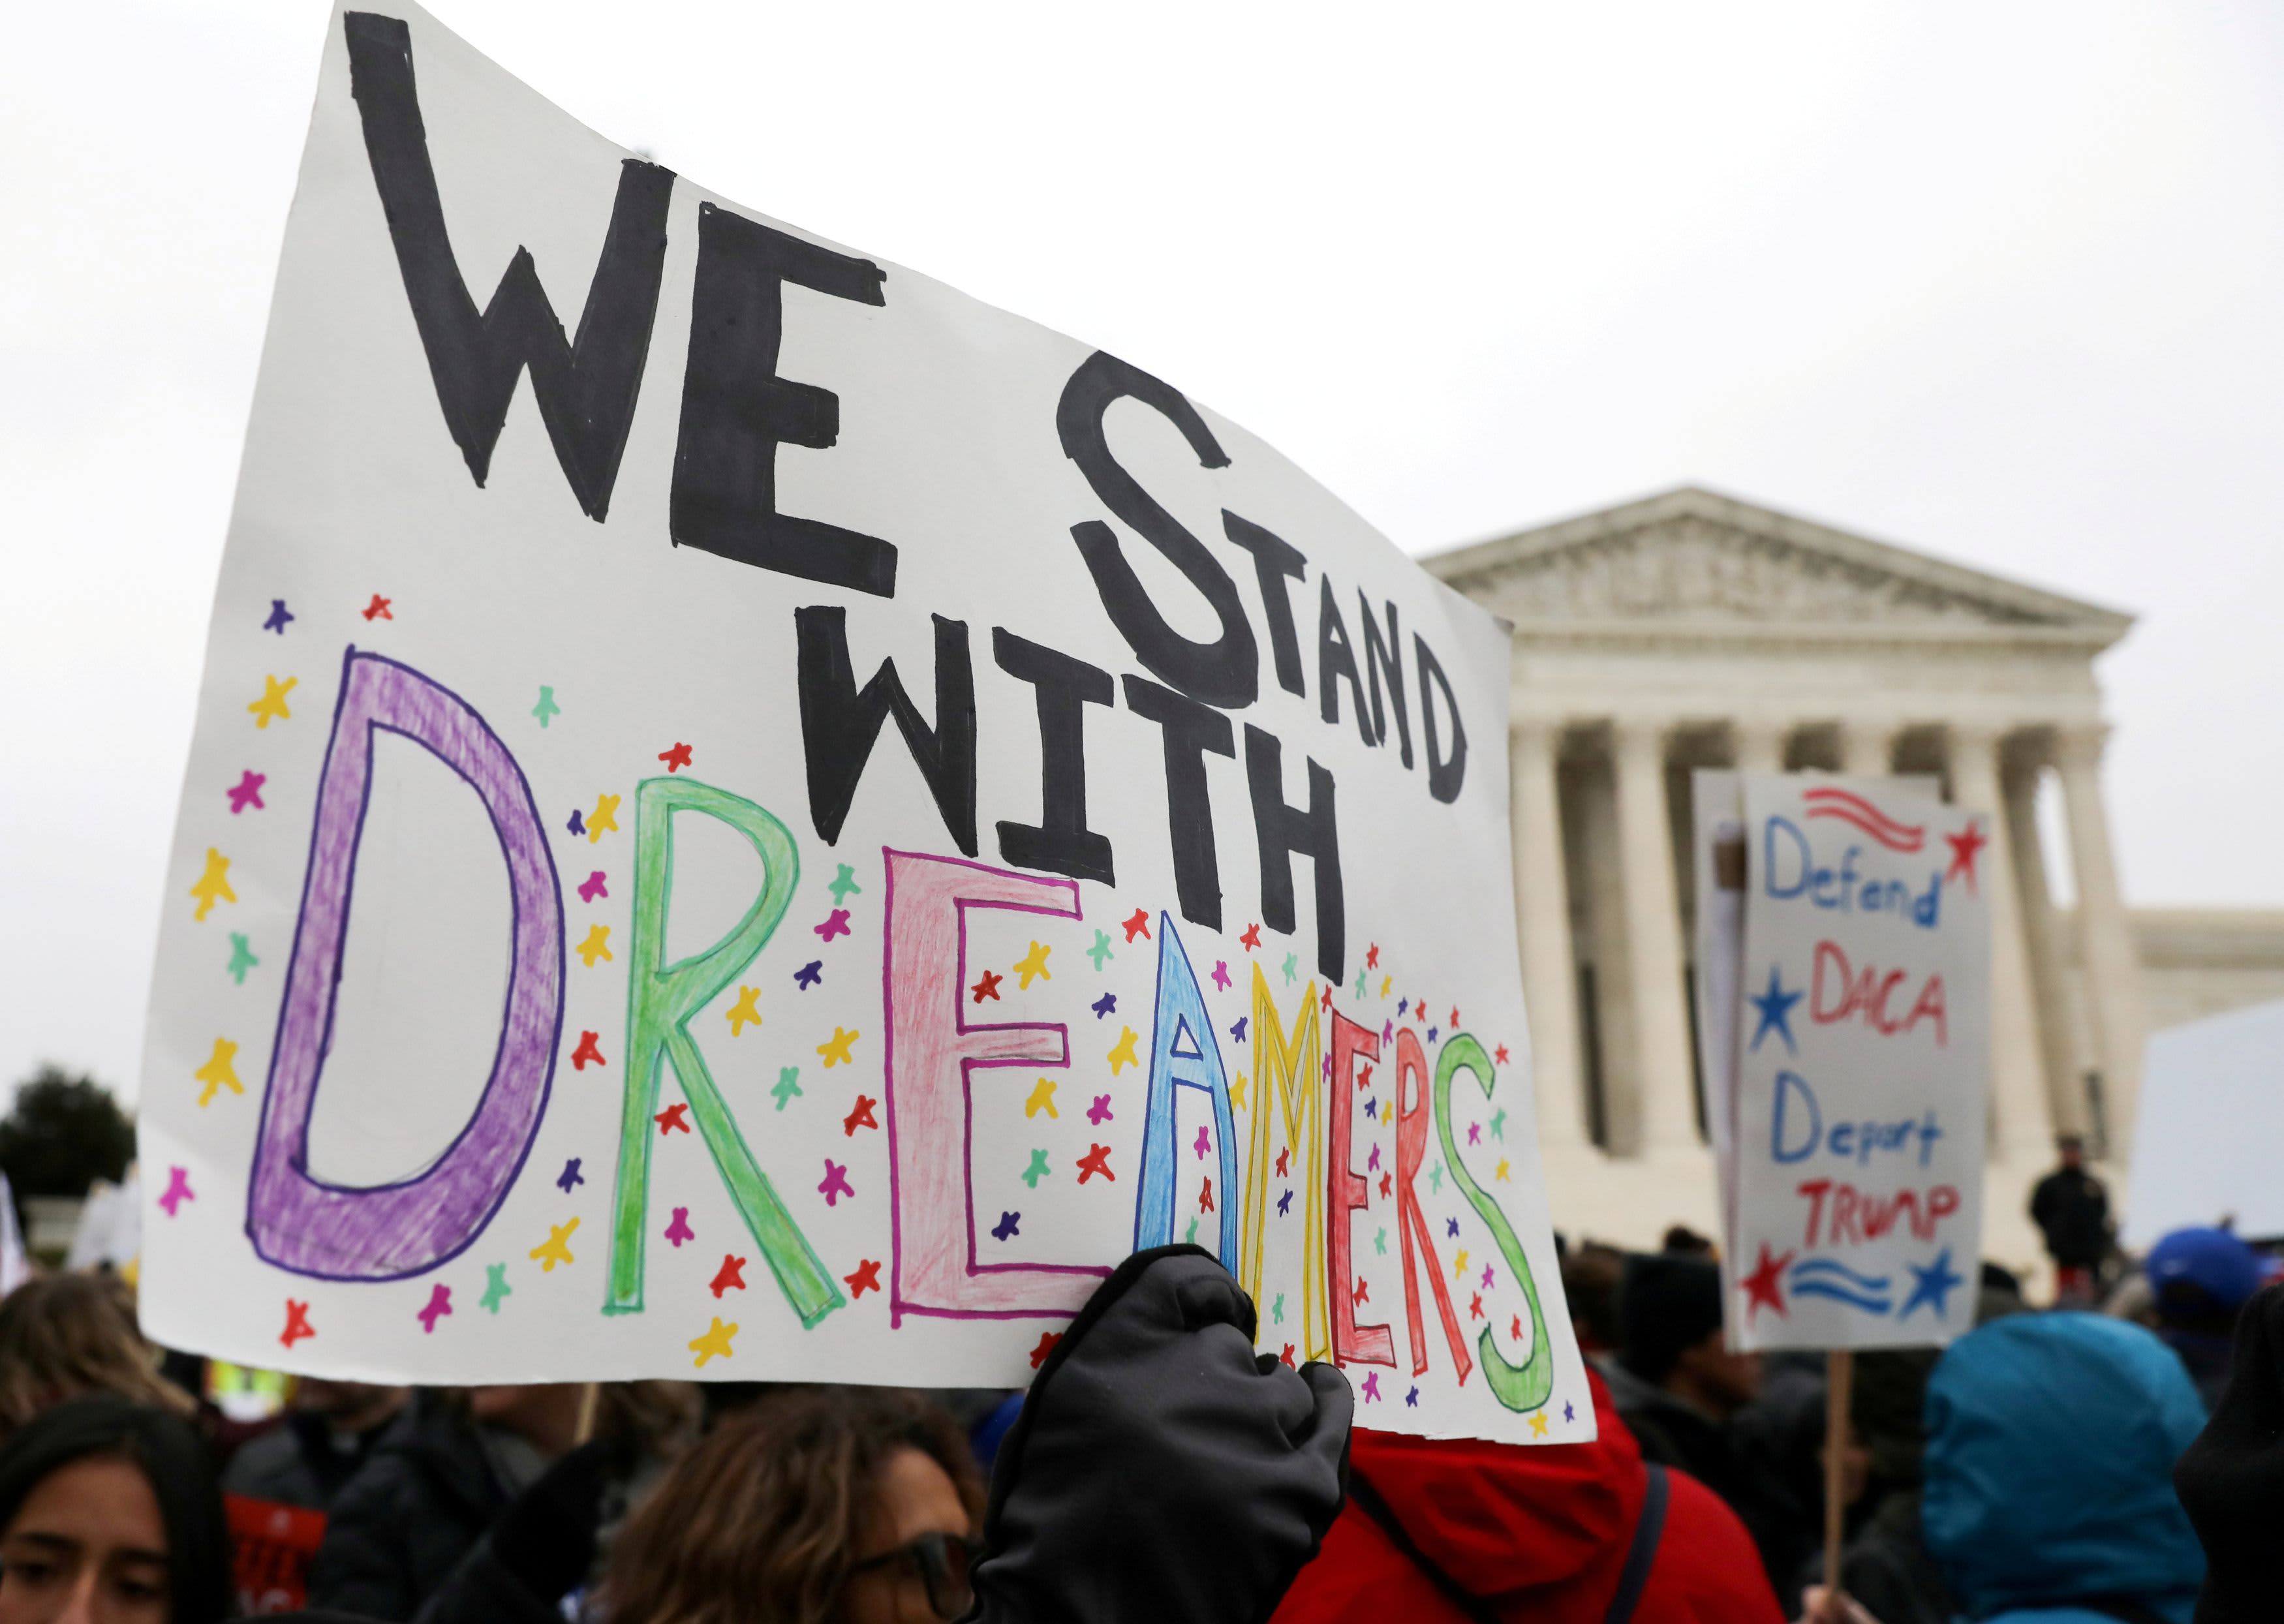 WE STAND
WITH
DREAMERS
Defend
DACA
Depart
TRUMP